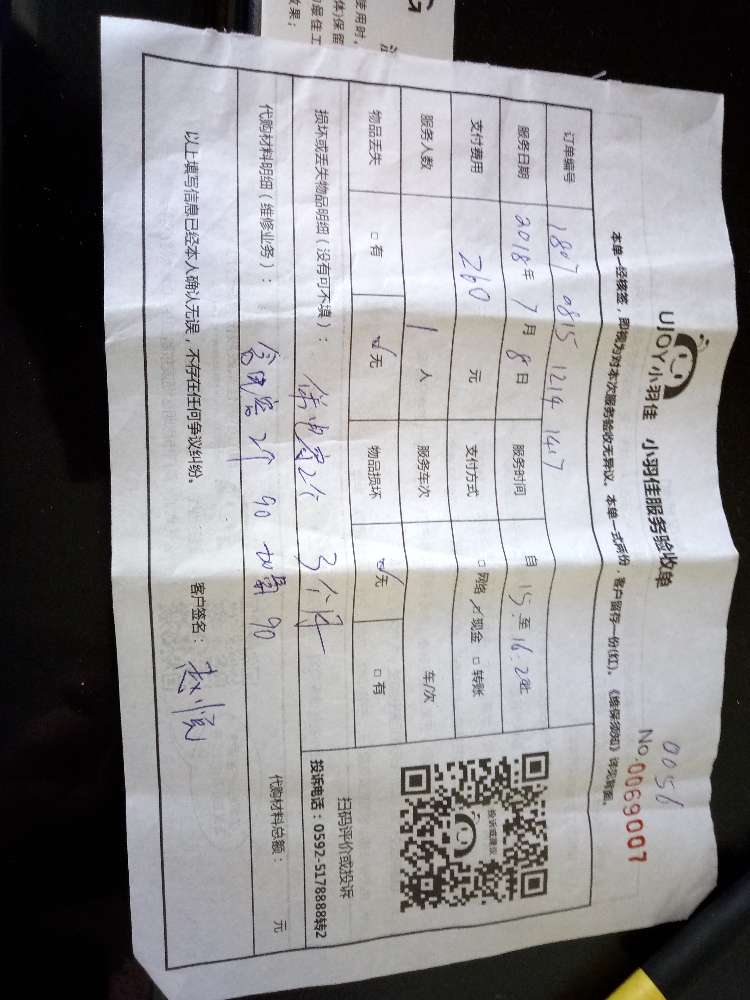 UJOY小羽佳 小羽佳服务验收单
0056
No.0069007
本单一经核签，即视为对本次服务验收无异议。本单一式两份，客户留存一份(红)。《维保须知》详见背面。
订单编号 1807 0815 1214 1417
服务日期 2018年 7月 8日 服务时间 自 15 至 16:20
支付费用 260 元 支付方式 □网络 ☑现金 □转账
服务人数 1 人 服务车次 车/次
物品丢失 □有 ☑无 物品损坏 ☑无 □有
损坏或丢失物品明细（没有可不填）： 3个
代购材料明细（维修业务）： 2个 90 90
代购材料总额： 元
投诉或建议
扫码评价或投诉
投诉电话：0592-5178888转2
以上填写信息已经本人确认无误，不存在任何争议纠纷。 客户签名：赵悦
G
使用时，
体)保留
最佳工
效果；